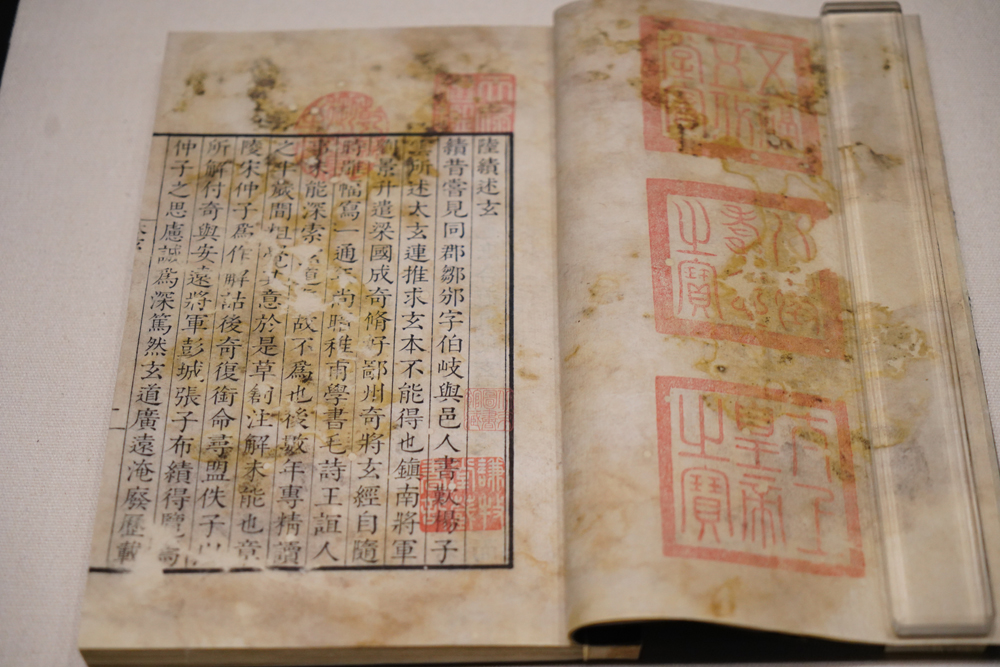 八徵耄念之寶
太上皇帝之寶
陸績述玄
績昔嘗見同郡鄒邠字伯岐與邑人書歎楊子
所述太玄連推求玄本不能得也鎮南將軍
景升遣梁國成奇脩好鄙州奇將玄經自隨
時雖幅寫一通尚暗稚甫學書毛詩王誼人
未能深索道故不爲也後數年專精讀
之半歲間粗覺其意於是草創注解未能也章
陵宋仲子爲作解詁後奇復銜命尋盟佚子以
所解付奇與安遠將軍彭城張子布績得覽焉
仲子之思慮誠爲深篤然玄道廣遠淹廢歷載
謙牧堂藏書記